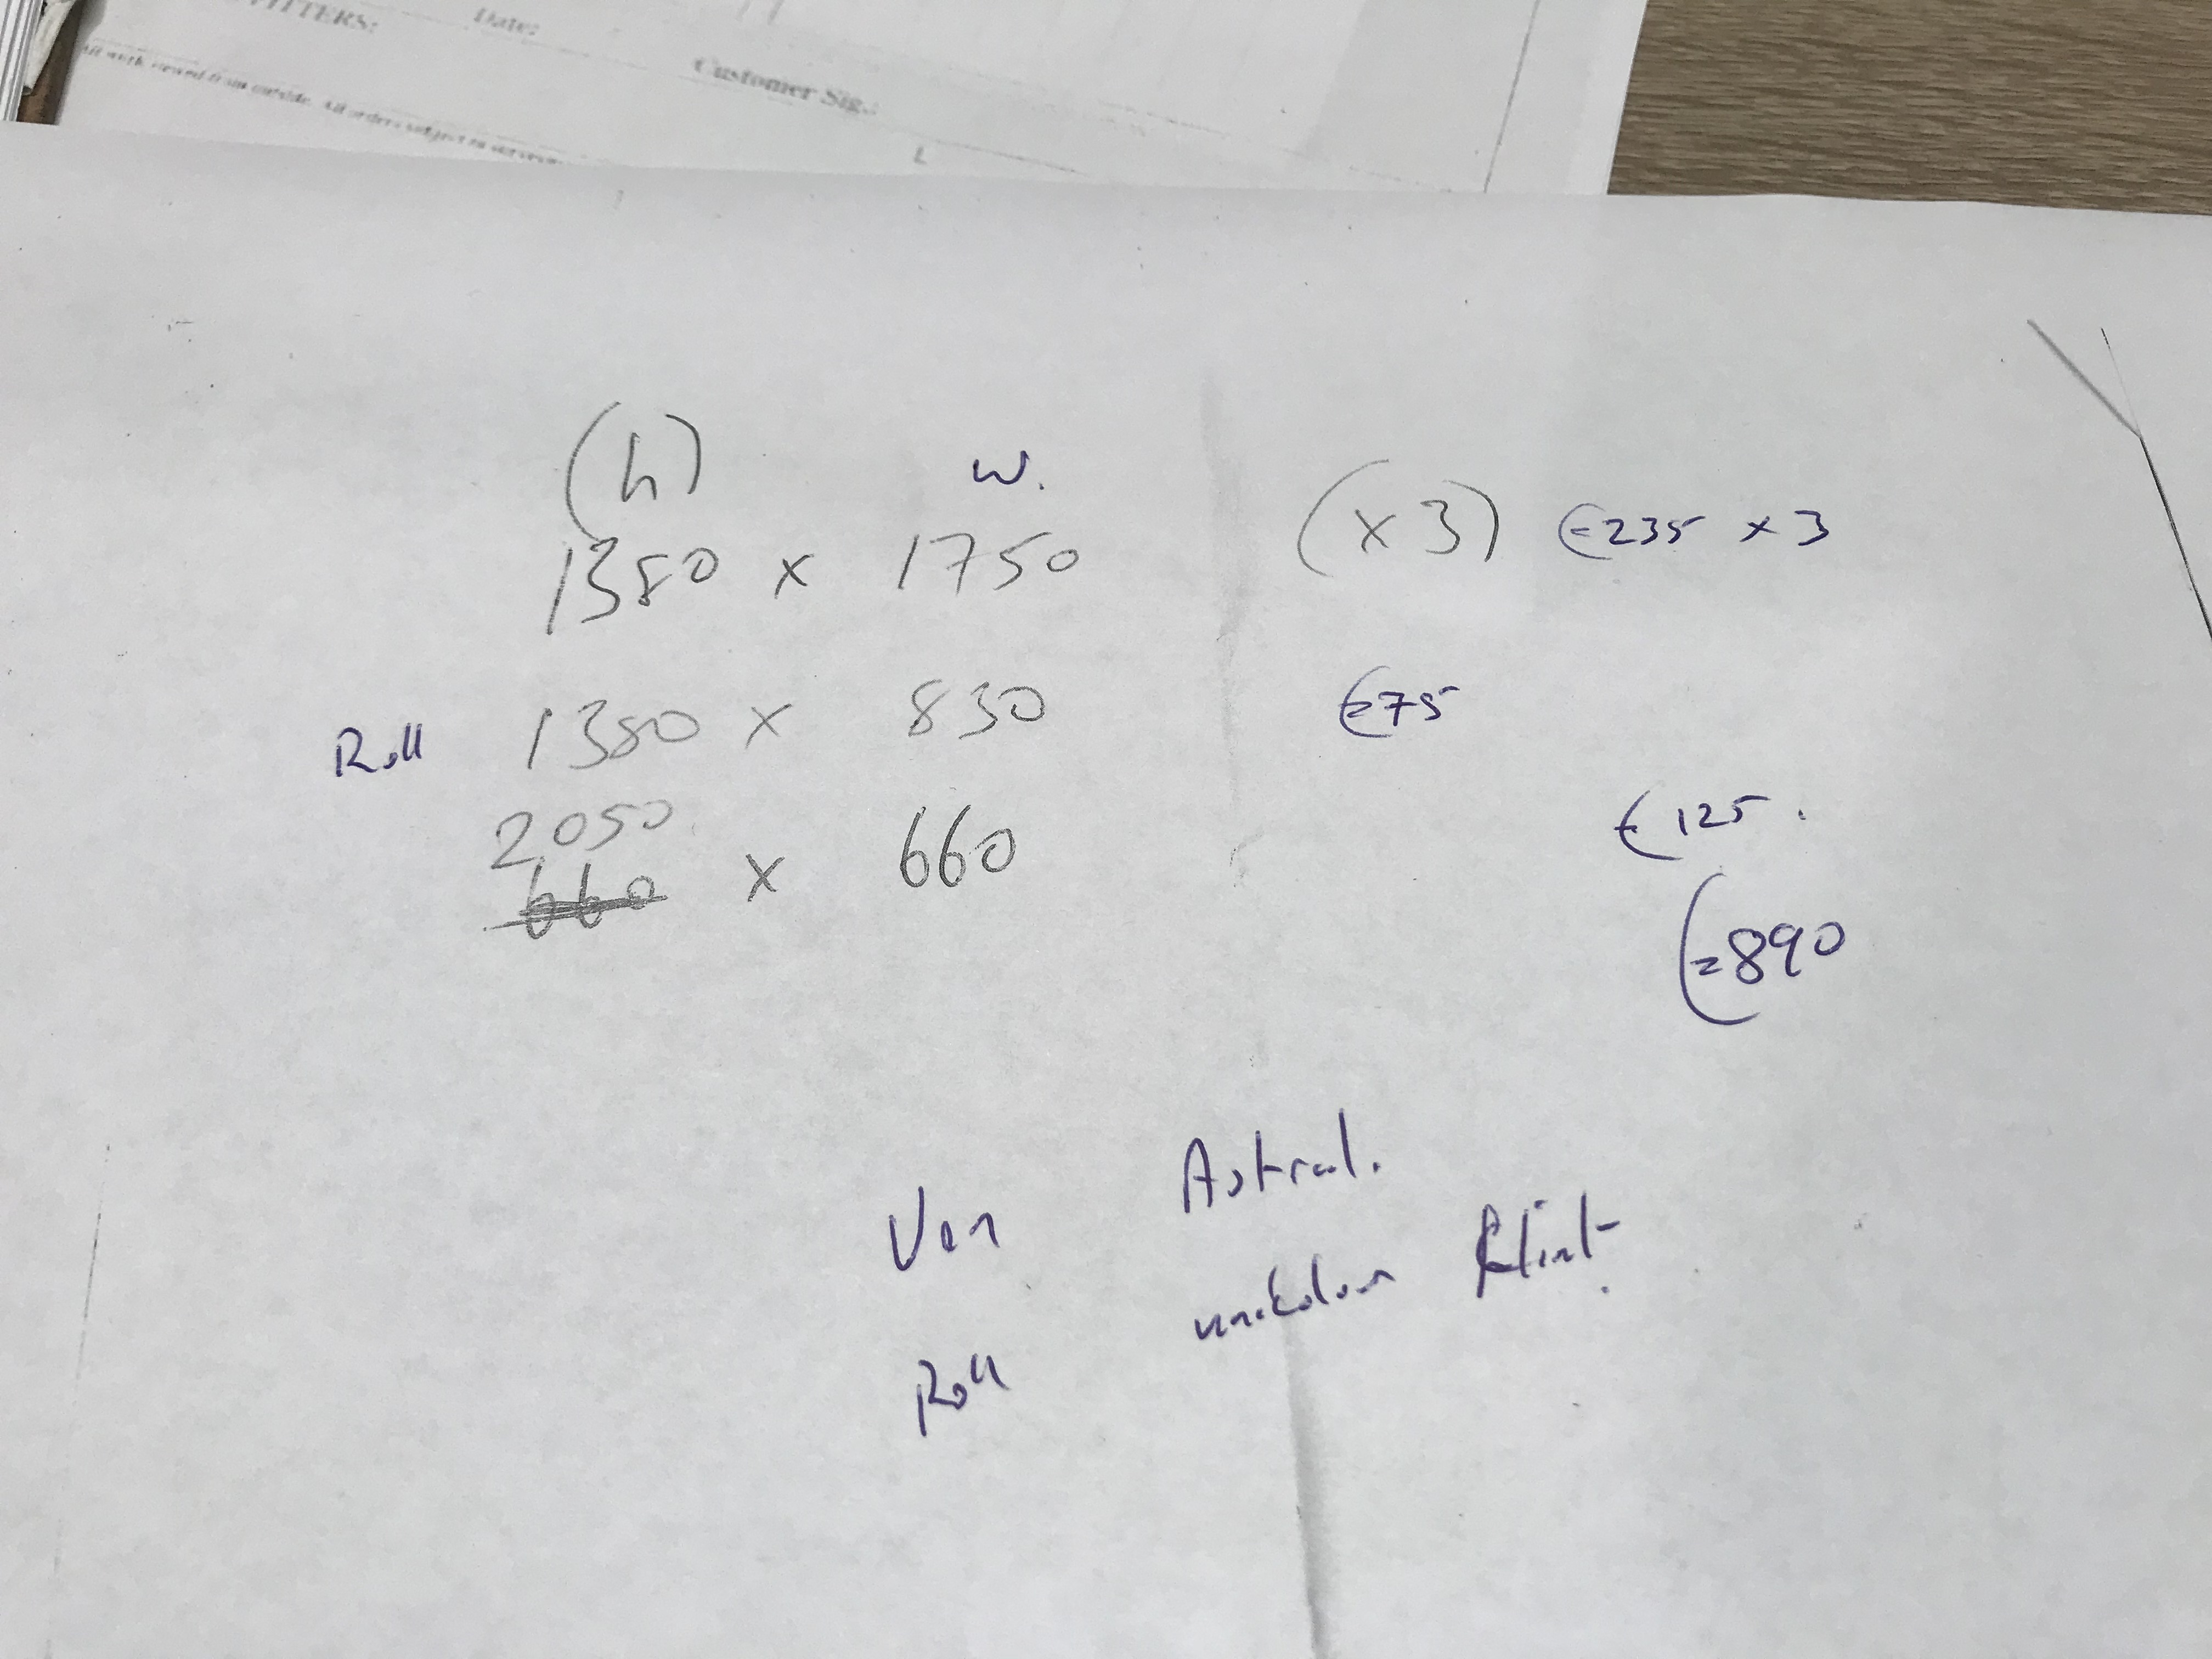 FITTERS:
Date:
Customer Sig.:
All work viewed from outside. All orders subject to survey
(h) w.
1380 x 1750 (x3) €235 x 3
Roll 1380 x 830 €75
2050
660 x 660 €125.
€890
Ven Astral.
unicolour Flint.
Roll